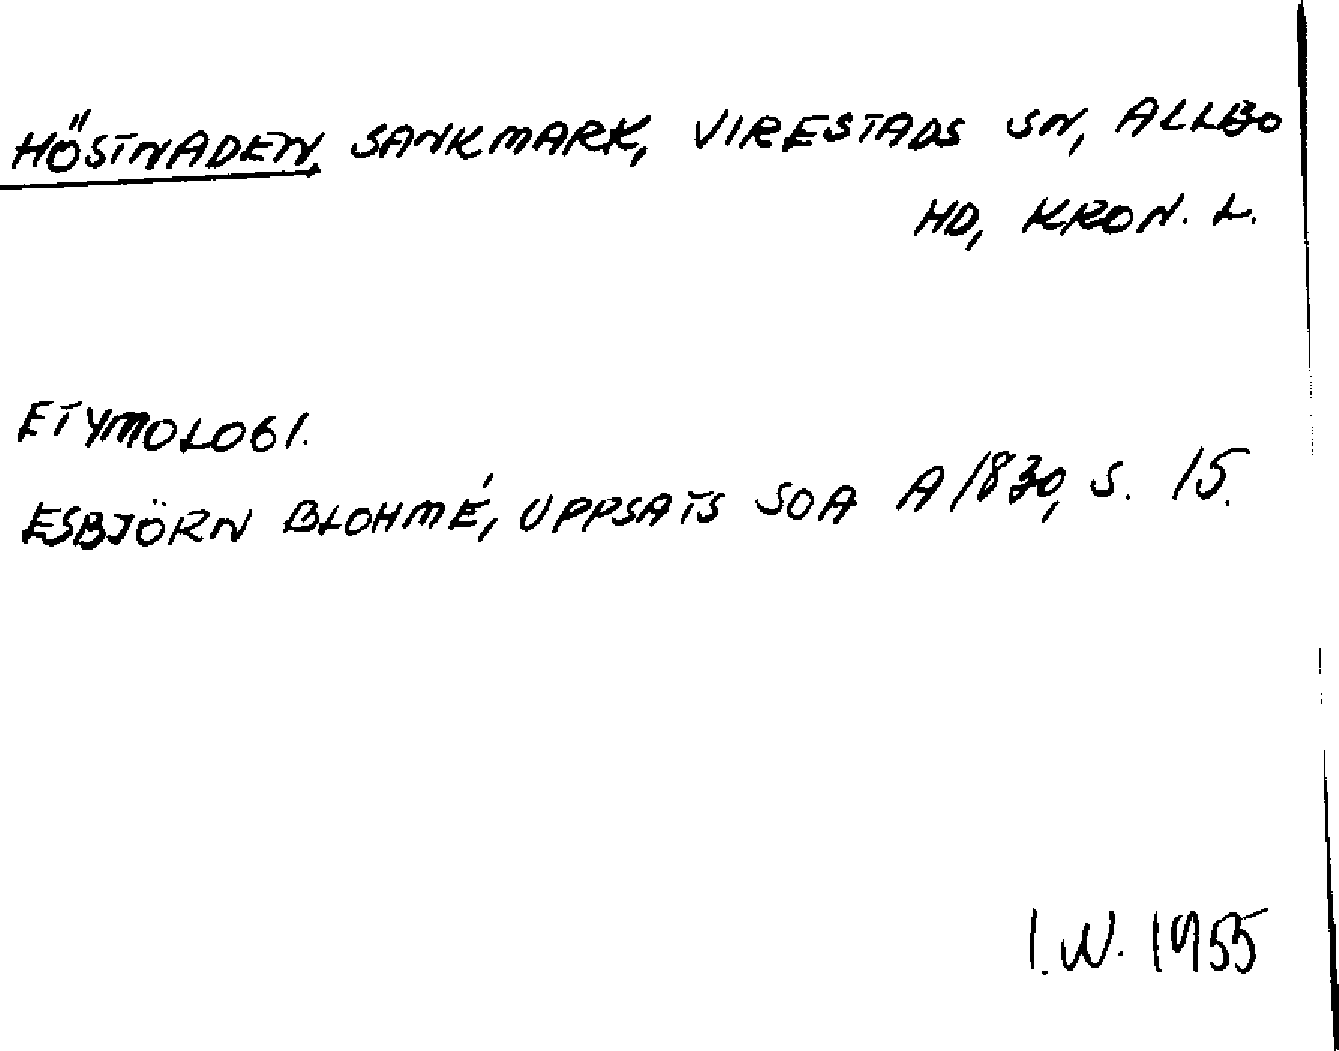 HÖSTNADEN, SANKMARK, VIRESTADS SN, ALLBO
HD, KRON. L.
ETYMOLOGI.
ESBJÖRN BLOHMÉ, UPPSATS SOA A/830, S. 15.
I.W. 1955